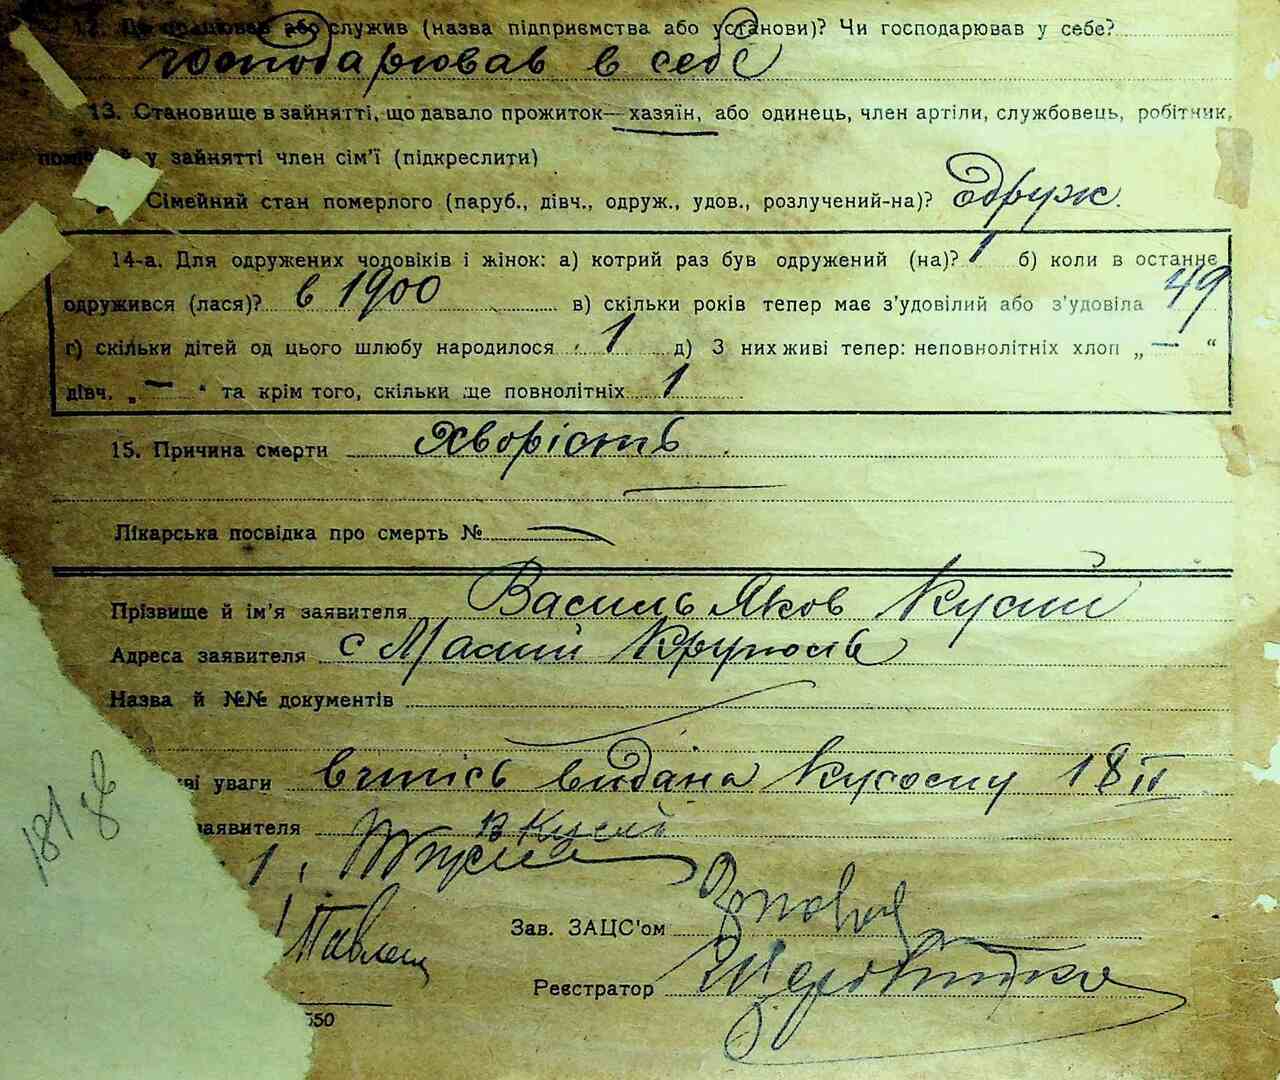 12. Де працював або служив (назва підприємства або установи)? Чи господарював у себе?
господарював в себе
13. Становище в зайнятті, що давало прожиток— хазяїн, або одинець, член артіли, службовець, робітник,
у зайнятті член сім’ї (підкреслити)
Сімейний стан померлого (паруб., дівч., одруж., удов., розлучений-на)? Одруж.
14-а. Для одружених чоловіків і жінок: а) котрий раз був одружений (на)? 1 б) коли в останнє
одружився (лася)? в 1900 в) скільки років тепер має з’удовілий або з’удовіла 49
г) скільки дітей од цього шлюбу народилося 1 д) З них живі тепер: неповнолітніх хлоп „ — “
дівч. „ — “ та крім того, скільки ще повнолітніх 1
15. Причина смерти Хворість
Лікарська посвідка про смерть № —
Прізвище й ім’я заявителя Василь Яков Кусий
Адреса заявителя с Малий Крупосів
Назва й №№ документів —
уваги видана 18 II
заявителя
1.
Зав. ЗАЦС’ом
Реєстратор
550
181